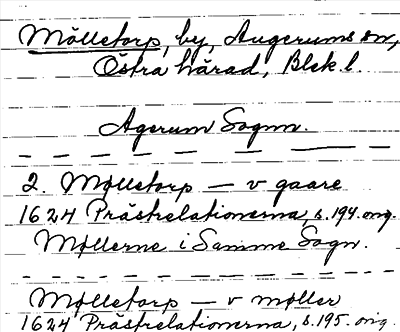 Mölletorp, by, Augerums sn,
Östra härad, Blek l.
Agerum Sognn.
2. Mølletorp — v gaare
1624 Prästrelationerna, s. 194. orig.
Møllerne i Samme Sogn.
Mølletorp — v møller
1624 Prästrelationerna, s. 195. orig.